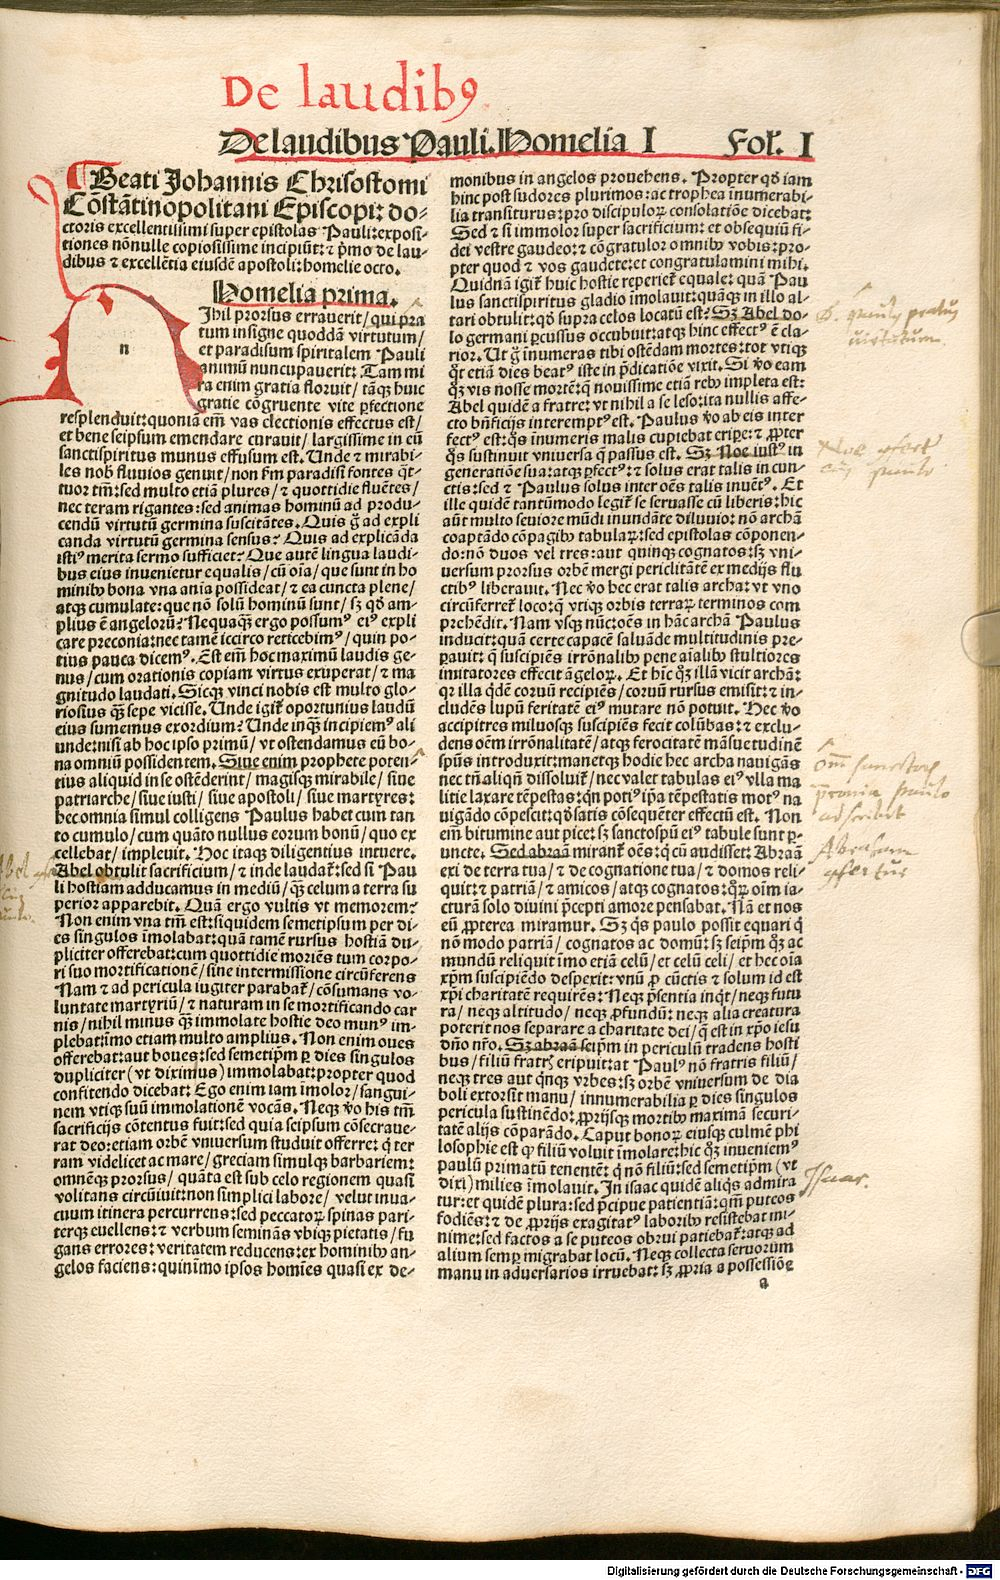 De laudibꝰ
De laudibus Pauli. Homelia I Fol. I
Beati Johannis Chrisostomi
Cōstātinopolitani Episcopi: do-
ctoris excellentissimi super epistolas Pauli: exposi-
tiones nōnulle copiosissime incipiūt: ⁊ p̄mo de lau-
dibus ⁊ excellētia eiusdē apostoli: homelie octo.
Homelia prima.
n
Ihil prorsus errauerit / qui pra
tum insigne quoddā virtutum /
et paradisum spiritalem Pauli
animū nuncupauerit: Tam mi
ra enim gratia floruit / tāqꝫ huic
gratie cōgruente vite ꝑfectione
resplenduit: quoniā em̄ vas electionis effectus est /
et bene seipsum emendare curauit / largissime in eū
sanctispiritus munus effusum est. Unde ⁊ mirabi-
les nob̄ fluuios genuit / non km̄ paradisi fontes q̄t-
tuor tm̄: sed multo etiā plures / ⁊ quottidie fluētes /
nec teram rigantes: sed animas hominū ad produ-
cendū virtutū germina suscitātes. Quis g̃ ad expli
canda virtutū germina sensus? Quis ad explicāda
istiꝰ merita sermo sufficiet? Que autē lingua laudi-
bus eius inuenietur equalis / cū oīa / que sunt in ho
minibꝫ bona vna anīa possideat / ⁊ ea cuncta plene /
atqꝫ cumulate: que nō solū hominū sunt / sꝫ qđ am-
plius ē angelorū? Nequaqꝫ ergo possumꝰ eiꝰ expli
care preconia: nec tamē iccirco reticebimꝰ / quin po-
tius pauca dicemꝰ. Est em̄ hoc maximū laudis ge-
nus / cum orationis copiam virtus exuperat / ⁊ ma
gnitudo laudati. Sicqꝫ vinci nobis est multo glo-
riosius qꝫ sepe vicisse. Unde igit̄ oportunius laudū
eius sumemus exordium? Unde inqꝫ incipiemꝰ ali
unde: nisi ab hoc ipso primū / vt ostendamus eū bo-
na omniū possidentem. Siue enim prophete poten-
tius aliquid in se ostēderint / magisqꝫ mirabile / siue
patriarche / siue iusti / siue apostoli / siue martyres:
hec omnia simul colligens Paulus habet cum tan
to cumulo / cum quāto nullus eorum bonū / quo ex
cellebat / impleuit. Hoc itaqꝫ diligentius intuere.
Abel obtulit sacrificium / ⁊ inde laudat̄: sed si Pau
li hostiam adducamus in mediū / qꝫ celum a terra su
perior apparebit. Quā ergo vultis vt memorem?
Non enim vna tm̄ est: siquidem semetipsum per di-
es singulos īmolabat: quā tamē rursus hostiā du-
pliciter offerebat: cum quottidie moriēs tum corpo-
ri suo mortificationē / sine intermissione circūferens
Nam ⁊ ad pericula iugiter parabat̄ / cōsumans vo-
luntate martyriū / ⁊ naturam in se mortificando car
nis / nihil minus qꝫ immolate hostie deo munꝰ im-
plebat: īmo etiam multo amplius. Non enim oues
offerebat: aut boues: sed semetip̄m ꝑ dies singulos
dupliciter (vt diximus) immolabat: propter quod
confitendo dicebat: Ego enim iam īmolor / sangui-
nem vtiqꝫ suū immolationē vocās. Neqꝫ v̄o his tm̄
sacrificijs cōtentus fuit: sed quia seipsum cōsecraue-
rat deo: etiam orbē vniuersum studuit offerre: q̇ ter
ram videlicet ac mare / greciam simulqꝫ barbariem:
omnēqꝫ prorsus / quāta est sub celo regionem quasi
volitans circūiuit: non simplici labore / velut inua-
cuum itinera percurrens: sed peccatoꝝ spinas pari-
terqꝫ euellens: ⁊ verbum seminās vbiqꝫ pietatis / fu
gans errores: veritatem reducens: ex hominibꝫ an-
gelos faciens: quinīmo ipsos homīes quasi ex de-
monibus in angelos prouehens. Propter qđ iam
hinc post sudores plurimos: ac trophea īnumerabi-
lia transiturus: pro discipuloꝝ consolatiōe dicebat:
Sed ⁊ si immolor super sacrificium: et obsequiū fi-
dei vestre gaudeo: ⁊ cōgratulor omnibꝫ vobis: pro-
pter quod ⁊ vos gaudete: et congratulamini mihi.
Quidnā igit̄ huic hostie reperiet̄ equale: quā Pau
lus sanctispiritus gladio īmolauit: quāqꝫ in illo al-
tari obtulit: qđ supra celos locatū est? Sꝫ Abel do-
lo germani ꝑcussus occubuit: atqꝫ hinc effectꝰ ē cla-
rior. Ut g̃ īnumeras tibi ostēdam mortes: tot vtiqꝫ
qt̄ etiā dies beatꝰ iste in p̄dicatiōe vixit. Si v̄o eam
qꝫ vis nosse mortē: q̄ nouissime etiā rebꝫ impleta est:
Abel quidē a fratre: vt nihil a se leso: ita nullis affe-
cto bn̄ficijs interemptꝰ est. Paulus v̄o ab eis inter
fectꝰ est: q̇s īnumeris malis cupiebat eriꝑe: ⁊ ꝓpter
q̇s sustinuit vniuersa q̄ passus est. Sꝫ Noe iustꝰ in
generatiōe sua: atqꝫ ꝑfectꝰ: ⁊ solus erat talis in cun-
ctis: sed ⁊ Paulus solus inter oēs talis inuētꝰ. Et
ille quidē tantūmodo legit̄ se seruasse cū liberis: hic
aūt multo seuiore mūdi inundāte diluuio: nō archā
coaptādo cōpagibꝫ tabulaꝝ: sed epistolas cōponen-
do: nō duos vel tres: aut quinqꝫ cognatos: sꝫ vni-
uersum prorsus orbē mergi periclitātē ex medijs flu
ctibꝰ liberauit. Nec v̄o hec erat talis archa: vt vno
circūferret̄ loco: q̄ vtiqꝫ orbis terraꝝ terminos com
prehēdit. Nam vsqꝫ nūc: oēs in hāc archā Paulus
inducit: quā certe capacē saluāde multitudinis pre-
ꝑauit: q̇ suscipiēs irrōnalibꝫ pene aīalibꝫ stultiores
imitatores effecit āgeloꝝ. Et hic qꝫ illā vicit archā:
qꝛ illa q̇dē coruū recipiēs / coruū rursus emisit: ⁊ in-
cludēs lupū feritatē eiꝰ mutare nō potuit. Hec v̄o
accipitres miluosqꝫ suscipiēs fecit colūbas: ⁊ exclu-
dens oēm irrōnalitatē / atqꝫ ferocitatē māsuetudinē
sp̄us introduxit: manetqꝫ hodie hec archa nauigās
nec tn̄ aliqn̄ dissoluit̄ / nec valet tabulas eiꝰ vlla ma
litie laxare tēpestas: qn̄ potiꝰ ip̄a tēpestatis motꝰ na
uigādo cōpescit: qđ satis cōsequēter effectū est. Non
em̄ bitumine aut pice: sꝫ sanctosp̄u eiꝰ tabule sunt ꝑ-
uncte. Sed abraā mirant̄ oēs: q̇ cū audisset: Abraā
exi de terra tua / ⁊ de cognatione tua / ⁊ domos reli-
quit: ⁊ patriā / ⁊ amicos / atqꝫ cognatos: q̇ꝝ oīm ia-
cturā solo diuini p̄cepti amore pensabat. Nā et nos
eū ꝓpterea miramur. Sꝫ q̇s paulo possit equari q̇
nō modo patriā / cognatos ac domū: sꝫ seip̄m qꝫ ac
mundū reliquit īmo etiā celū / et celū celi / et hec oīa
xp̄m suscipiēdo despexit: vnū ꝓ cūctis ⁊ solum id est
xp̄i charitatē requirēs: Neqꝫ p̄sentia inq̇t / neqꝫ futu
ra / neqꝫ altitudo / neqꝫ ꝓfundū: neqꝫ alia creatura
poterit nos separare a charitate dei / q̄ est in xp̄o iesu
dn̄o nr̄o. Sꝫ abraā seip̄m in periculū tradens hosti
bus / filiū fratrꝭ eripuit: at Paulꝰ nō fratris filiū /
neqꝫ tres aut q̇nqꝫ vrbes: sꝫ orbē vniuersum de dia
boli extorsit manu / innumerabilia ꝑ dies singulos
pericula sustinēdo: ꝓprijsqꝫ mortibꝫ maximā securi-
tatē alijs cōparādo. Caput bonoꝝ eiusqꝫ culmē phi
losophie est qꝙ filiū voluit īmolare: hic qꝫ inueniemꝰ
paulū primatū tenentē: q̇ nō filiū: sed semetip̄m (vt
dixi) milies īmolauit. In isaac quidē aliq̇s admira
tur: et quidē plura: sed p̄cipue patientiā: qm̄ puteos
fodiēs: ⁊ de ꝓprijs exagitatꝰ laboribꝫ resistebat mi-
nime: sed factos a se puteos obrui patiebat̄: atqꝫ ad
alium semꝑ migrabat locū. Neqꝫ collecta seruorum
manu in aduersarios irruebat: sꝫ ꝓpria a possessiōe
a
Abraham
Isaac.
Digitalisierung gefördert durch die Deutsche Forschungsgemeinschaft - DFG